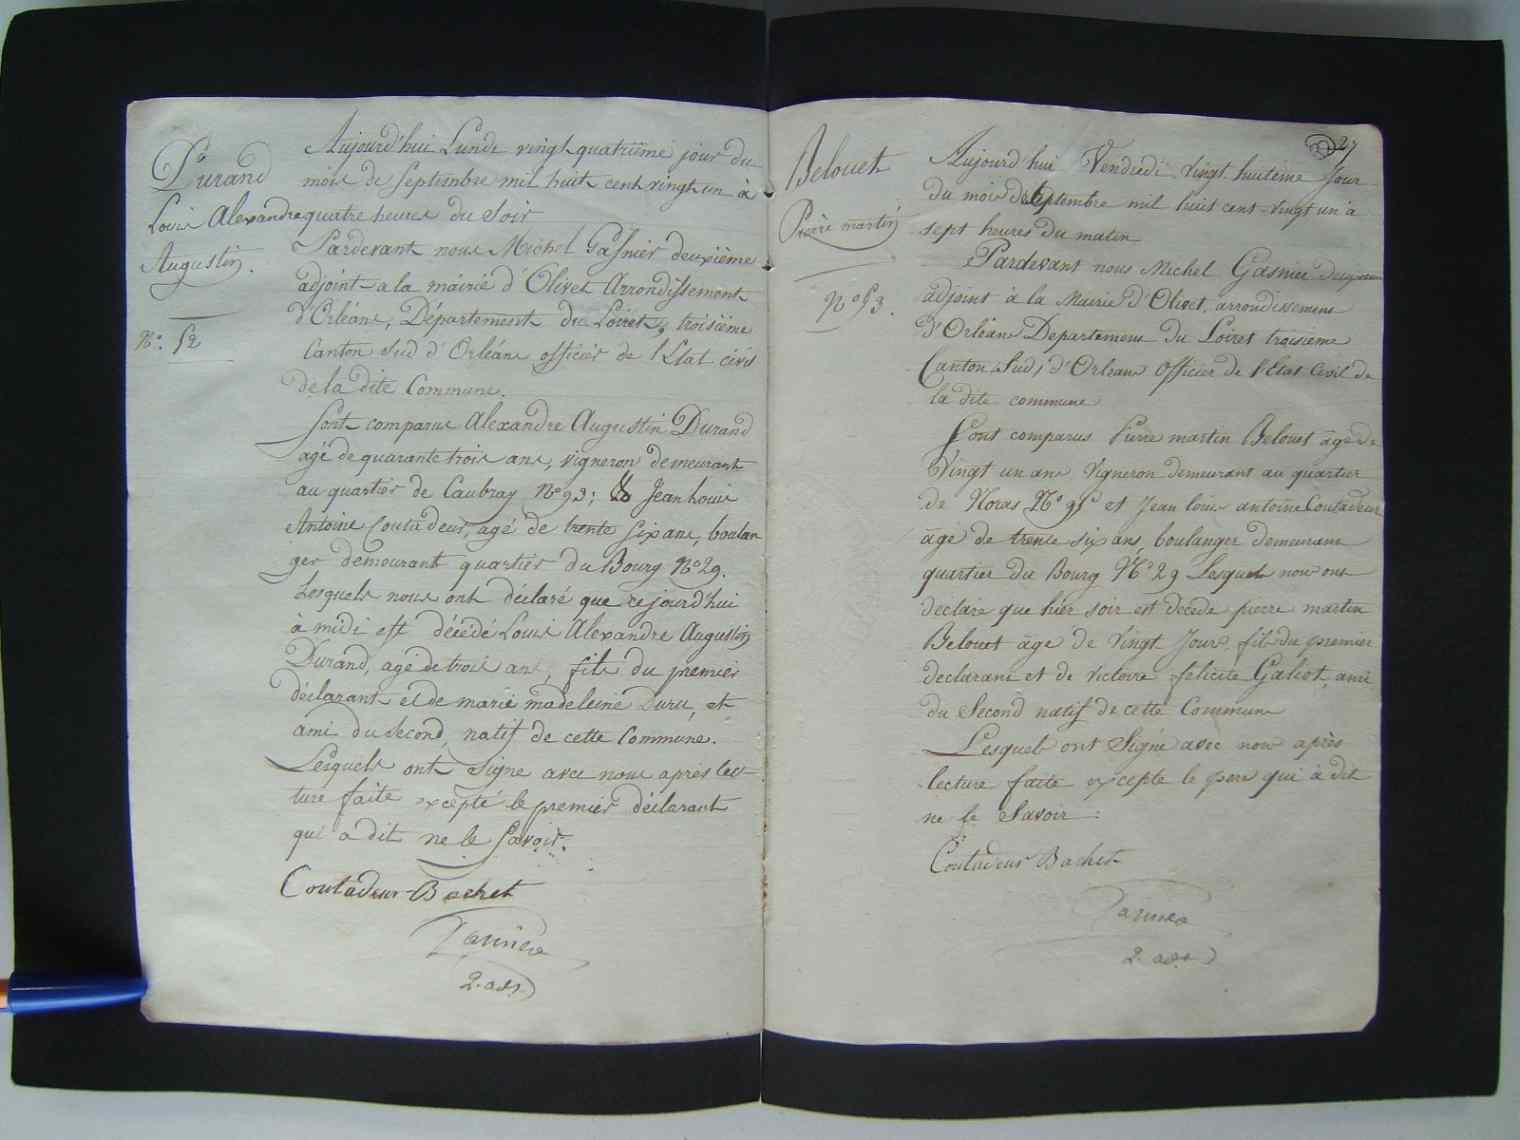 Durand
Louis Alexandre
Augustin.
N.° 52
Aujourd'hui Lundi vingt quatrieme jour du
mois de Septembre mil huit cent vingt un à
quatre heures du soir
Pardevant nous Michel Gasnier deuxième
adjoint a la mairie d'Olivet Arrondissement
d'Orléans, Département du Loiret, troisième
Canton Sud d'Orléans officier de l'Etat civil
de la dite Commune.
Sont comparus Alexandre Augustin Durand
agé de quarante trois ans, vigneron demeurant
au quartier de Caubray N° 93; Jean Louis
Antoine Coutadeur, agé de trente six ans, boulan
ger demeurant quartier du Bourg N° 29.
Lesquels nous ont déclaré que cejourd'hui
à midi est décédé Louis Alexandre Augustin
Durand, agé de trois ans, fils du premier
déclarant et de marie madeleine Duru, et
ami du second, natif de cette Commune.
Lesquels ont signe avec nous après lec
ture faite excepté le premier déclarant
qui a dit ne le savoir.
Coutadeur-Bachet
2. adj.
27
Belouet
Pierre martin
N° 53.
Aujourd'hui Vendredi vingt huitème Jour
du mois de Septembre mil huit cent vingt un a
sept heures du matin
Pardevant nous Michel Gasnier
adjoint à la Mairie d'Olivet, arrondissement
d'Orléans Departement du Loiret troisieme
Canton Sud, d'Orleans officier de l'Etat Civil de
la dite commune
Sont comparus Pierre martin Belouet âgé de
Vingt un ans vigneron demeurant au quartier
de Noras N° 95 et Jean louis antoine Coutadeur
âgé de trente six ans, boulanger demeurant
quartier du Bourg N° 29 Lesquels nous ont
declaré que hier soir est décédé pierre martin
Belouet âge de Vingt Jours, fils du premier
declarant et de victoire felicité Galiot, ami
du Second natif de cette Commune
Lesquels ont Signé avec nous après
lecture faite excepte le pere qui à dit
ne le Savoir :
Coutadeur-Bachet
2. adj.